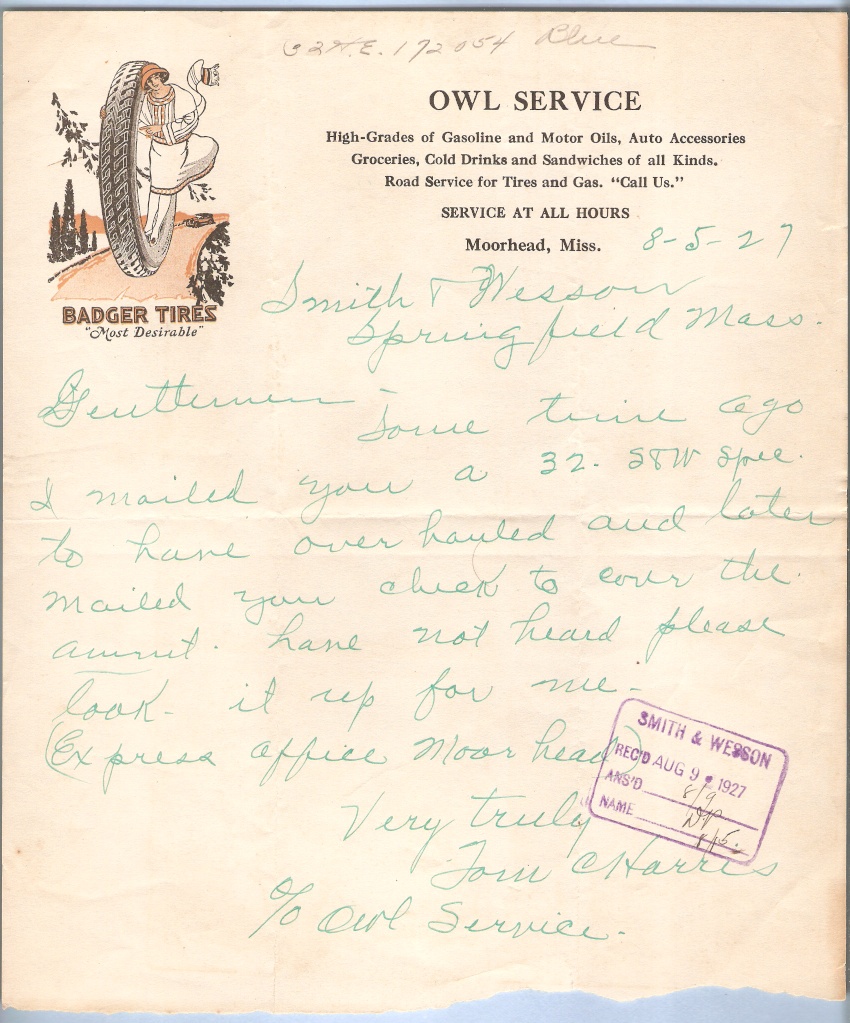 32 H.E. 172054 Blue
OWL SERVICE
High-Grades of Gasoline and Motor Oils, Auto Accessories
Groceries, Cold Drinks and Sandwiches of all Kinds.
Road Service for Tires and Gas. “Call Us.”
SERVICE AT ALL HOURS
Moorhead, Miss. 8-5-27
BADGER TIRES
“Most Desirable”
Smith & Wesson
Springfield Mass.
Gentlemen -
Some time ago
I mailed you a 32. S&W Spec.
to have over hauled and later
mailed you check to cover the
amunt. have not heard please
look - it up for me -
(Express office Moorhead)
SMITH & WESSON
REC'D AUG 9 1927
ANS'D 8/9
NAME
Very truly
Tom C Harris
c/o Owl Service.